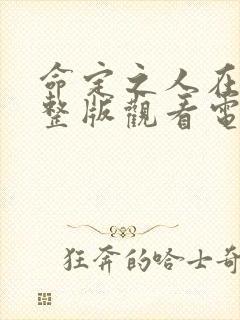 命定之人在
整版觀看電
狂奔的哈士奇